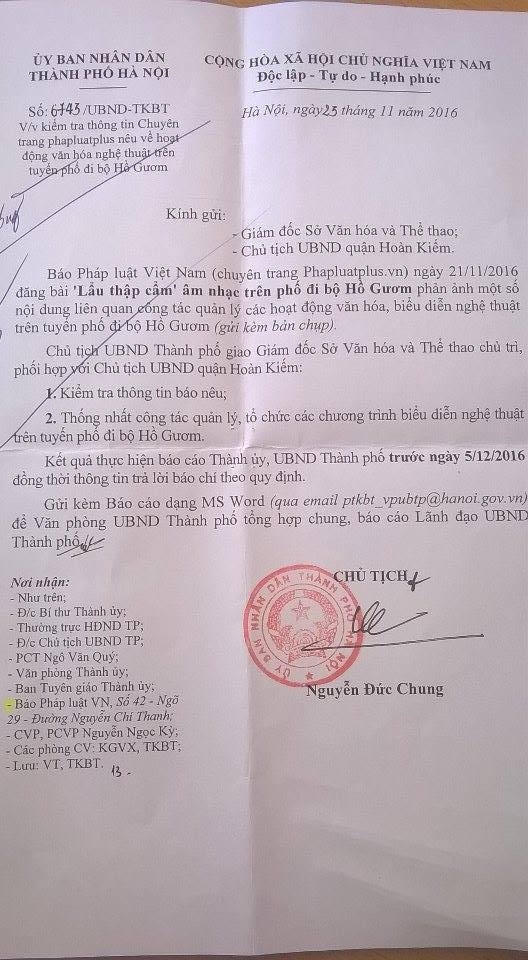 ỦY BAN NHÂN DÂN
THÀNH PHỐ HÀ NỘI
CỘNG HÒA XÃ HỘI CHỦ NGHĨA VIỆT NAM
Độc lập - Tự do - Hạnh phúc
Số: 6743/UBND-TKBT
Hà Nội, ngày 23 tháng 11 năm 2016
V/v kiểm tra thông tin Chuyên
trang phapluatplus nêu về hoạt
động văn hóa nghệ thuật trên
tuyến phố đi bộ Hồ Gươm
Kính gửi:
- Giám đốc Sở Văn hóa và Thể thao;
- Chủ tịch UBND quận Hoàn Kiếm.
Báo Pháp luật Việt Nam (chuyên trang Phapluatplus.vn) ngày 21/11/2016
đăng bài 'Lẩu thập cẩm' âm nhạc trên phố đi bộ Hồ Gươm phản ánh một số
nội dung liên quan công tác quản lý các hoạt động văn hóa, biểu diễn nghệ thuật
trên tuyến phố đi bộ Hồ Gươm (gửi kèm bản chụp).
Chủ tịch UBND Thành phố giao Giám đốc Sở Văn hóa và Thể thao chủ trì,
phối hợp với Chủ tịch UBND quận Hoàn Kiếm:
1. Kiểm tra thông tin báo nêu;
2. Thống nhất công tác quản lý, tổ chức các chương trình biểu diễn nghệ thuật
trên tuyến phố đi bộ Hồ Gươm.
Kết quả thực hiện báo cáo Thành ủy, UBND Thành phố trước ngày 5/12/2016
đồng thời thông tin trả lời báo chí theo quy định.
Gửi kèm Báo cáo dạng MS Word (qua email ptkbt_vpubtp@hanoi.gov.vn)
để Văn phòng UBND Thành phố tổng hợp chung, báo cáo Lãnh đạo UBND
Thành phố.
Nơi nhận:
- Như trên;
- Đ/c Bí thư Thành ủy;
- Thường trực HĐND TP;
- Đ/c Chủ tịch UBND TP;
- PCT Ngô Văn Quý;
- Văn phòng Thành ủy;
- Ban Tuyên giáo Thành ủy;
- Báo Pháp luật VN, Số 42 - Ngõ
29 - Đường Nguyễn Chí Thanh;
- CVP, PCVP Nguyễn Ngọc Kỳ;
- Các phòng CV: KGVX, TKBT;
- Lưu: VT, TKBT.
13.
CHỦ TỊCH
ỦY BAN NHÂN DÂN THÀNH PHỐ HÀ NỘI
Nguyễn Đức Chung